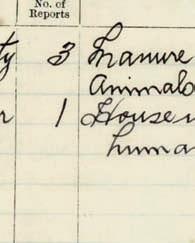 No. of
Reports
ty 3 Manure
Animals
r 1 House
human